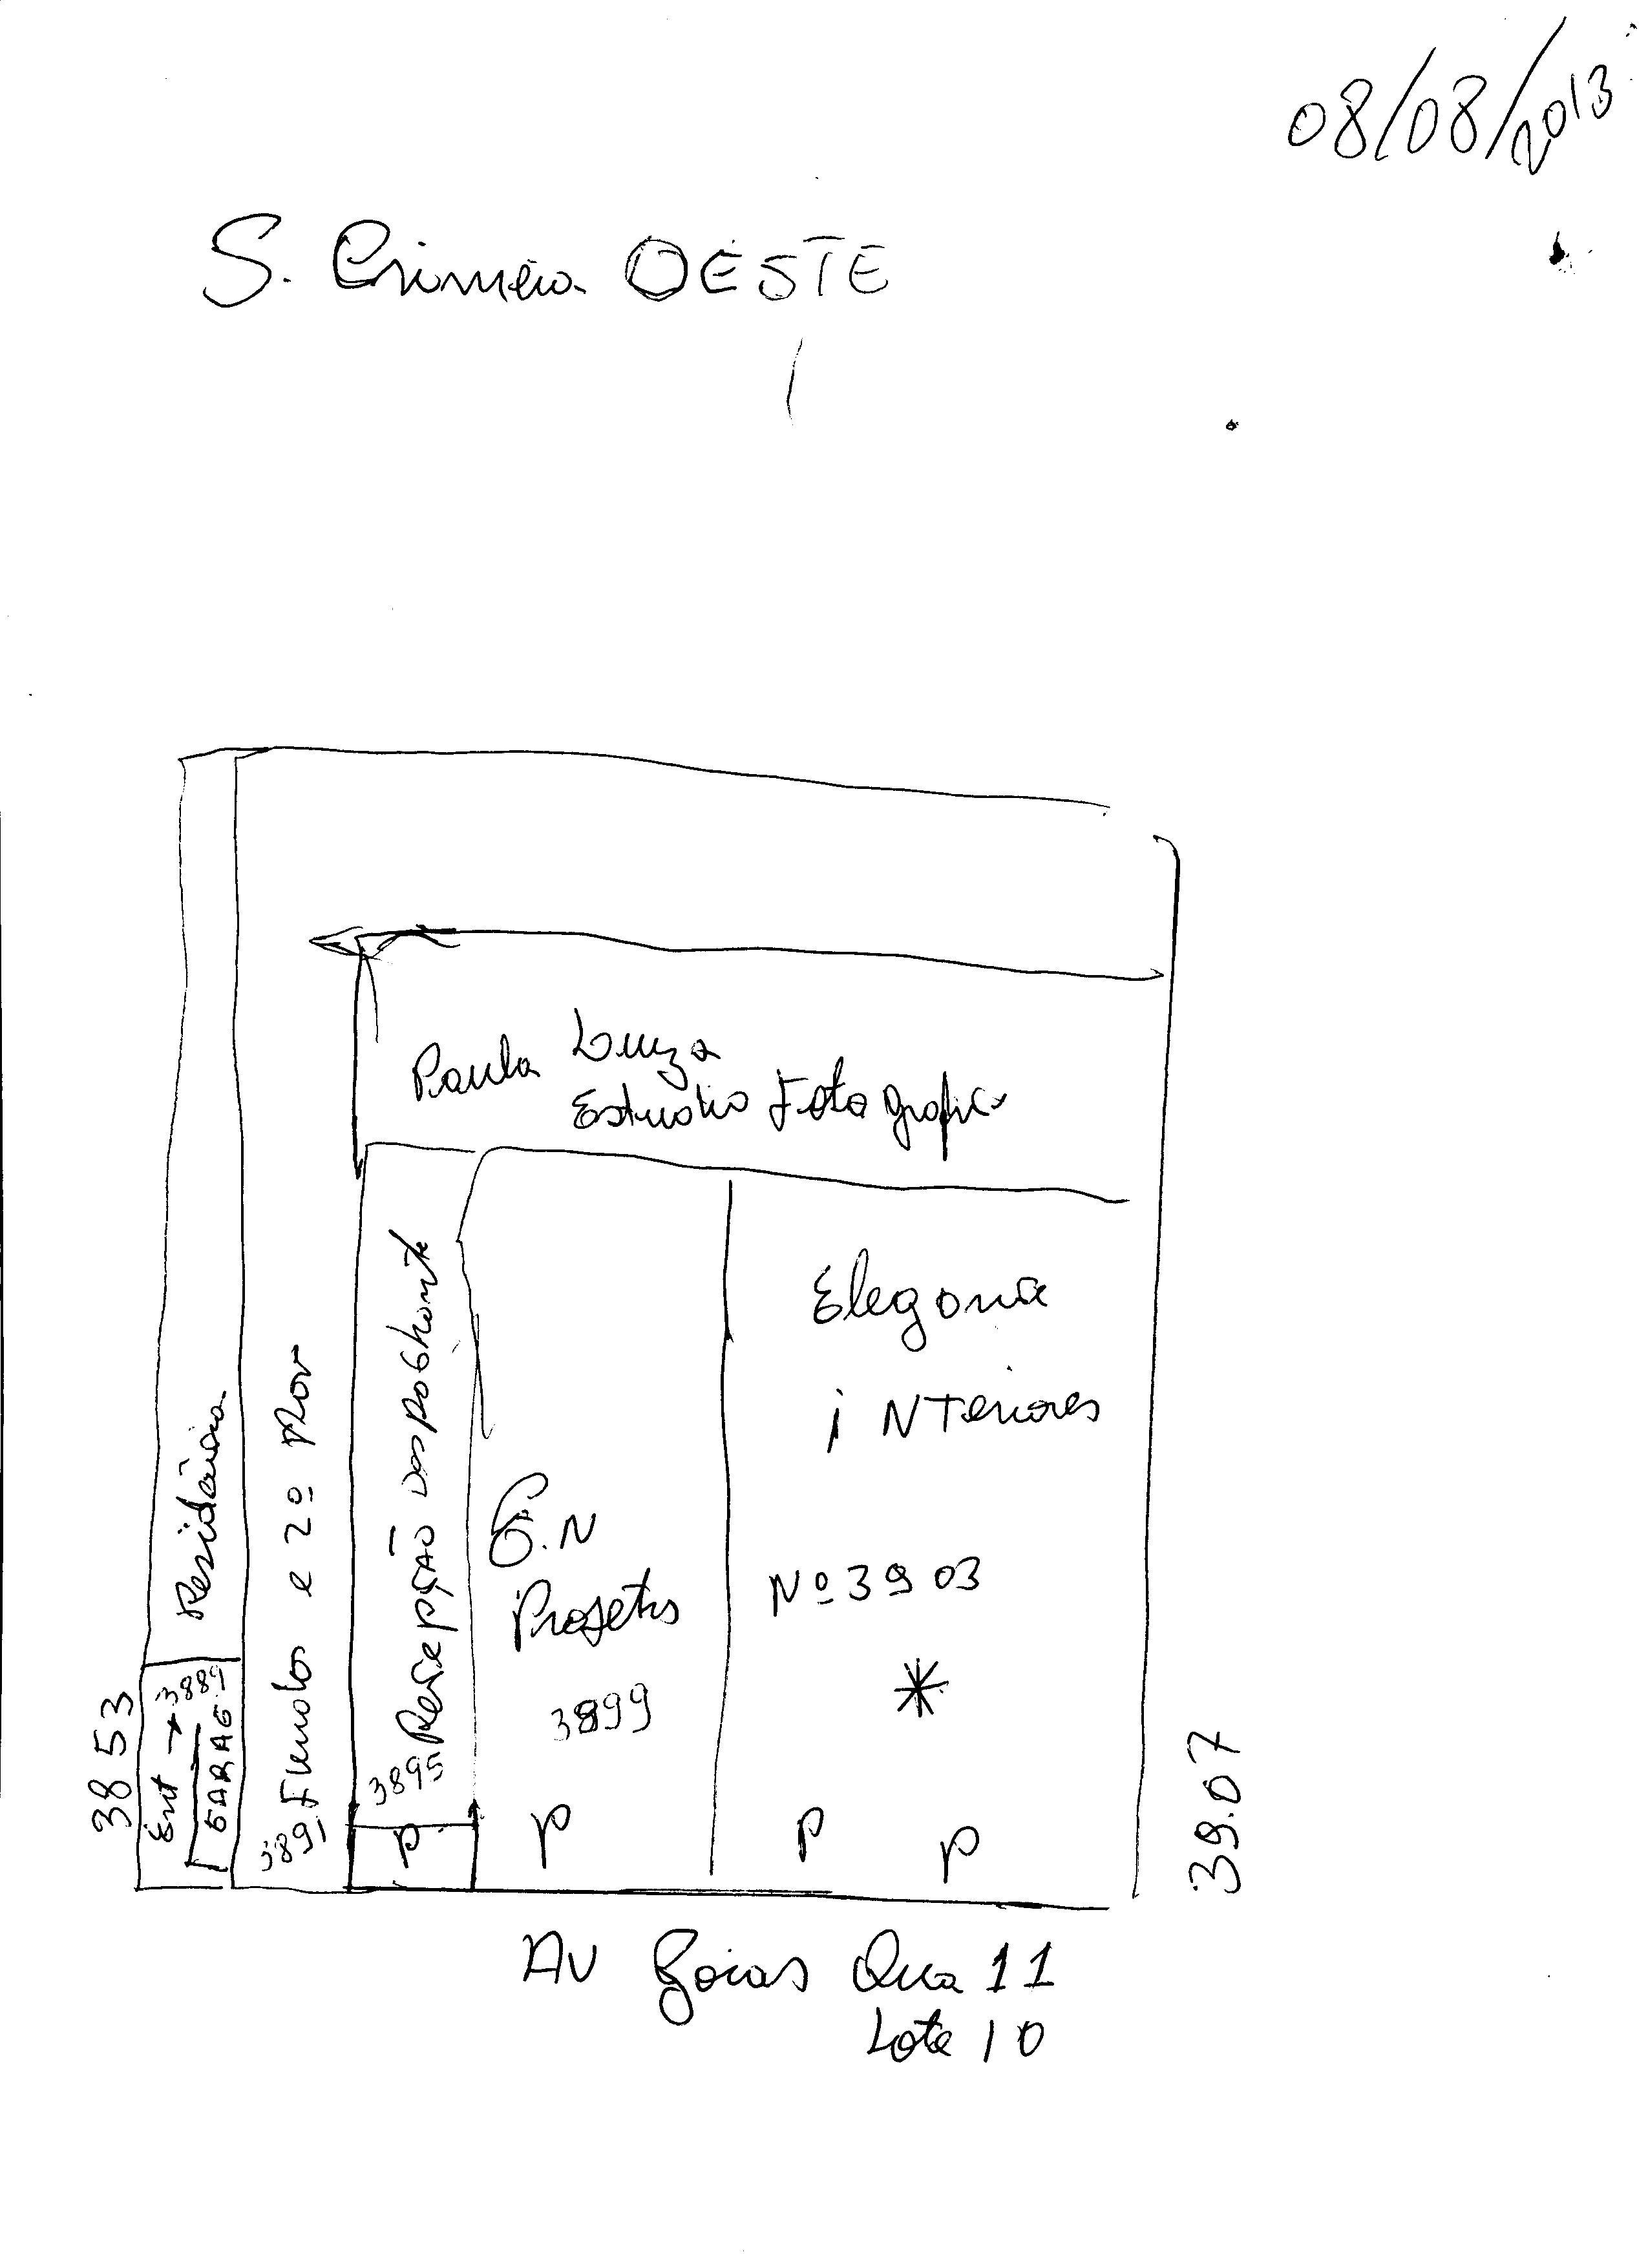 08/08/2013
S. Crimeia OESTE
Paula Luiza
Estudio Fotografic
Residência
3853
Ent → 3889
GARAG
3891 Fundos e 2º
3895 Recepção
G.N
Projetos
3899
P
P
Elegancia
iNTeriores
Nº 3903
*
P
P
39.07
AV Goias Qua 11
Lote 10